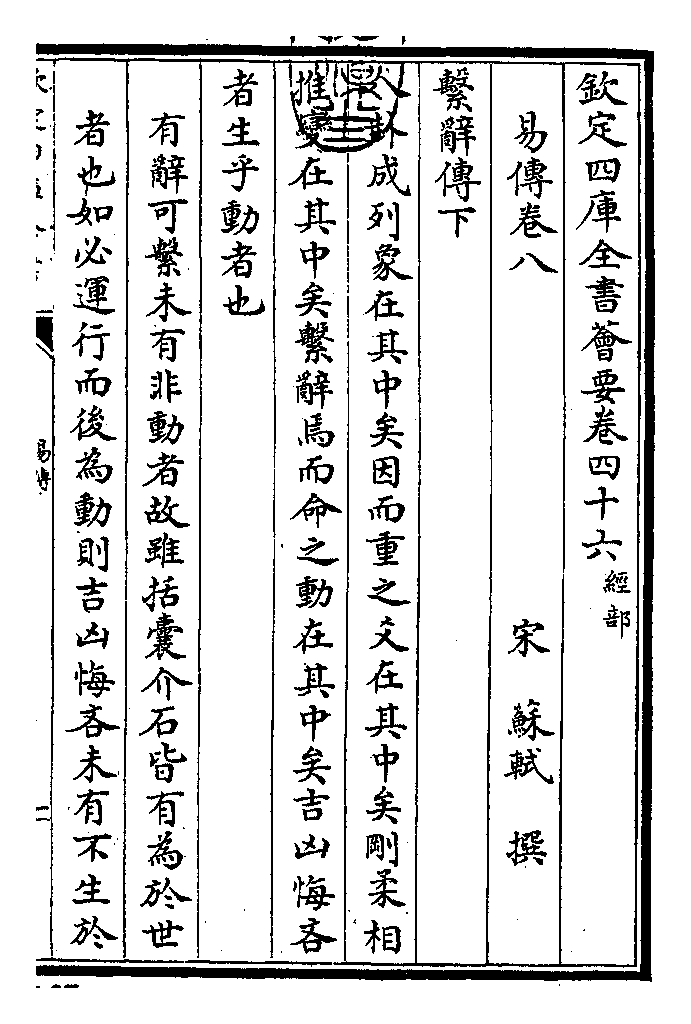 欽定四庫全書薈要卷四十六 經部
易傳卷八 宋 蘇軾 撰
繫辭傳下
八卦成列象在其中矣因而重之爻在其中矣剛柔相
推變在其中矣繫辭焉而命之動在其中矣吉凶悔吝
者生乎動者也
有辭可繫未有非動者故雖括囊介石皆有為於世
者也如必運行而後為動則吉凶悔吝未有不生於
易傳